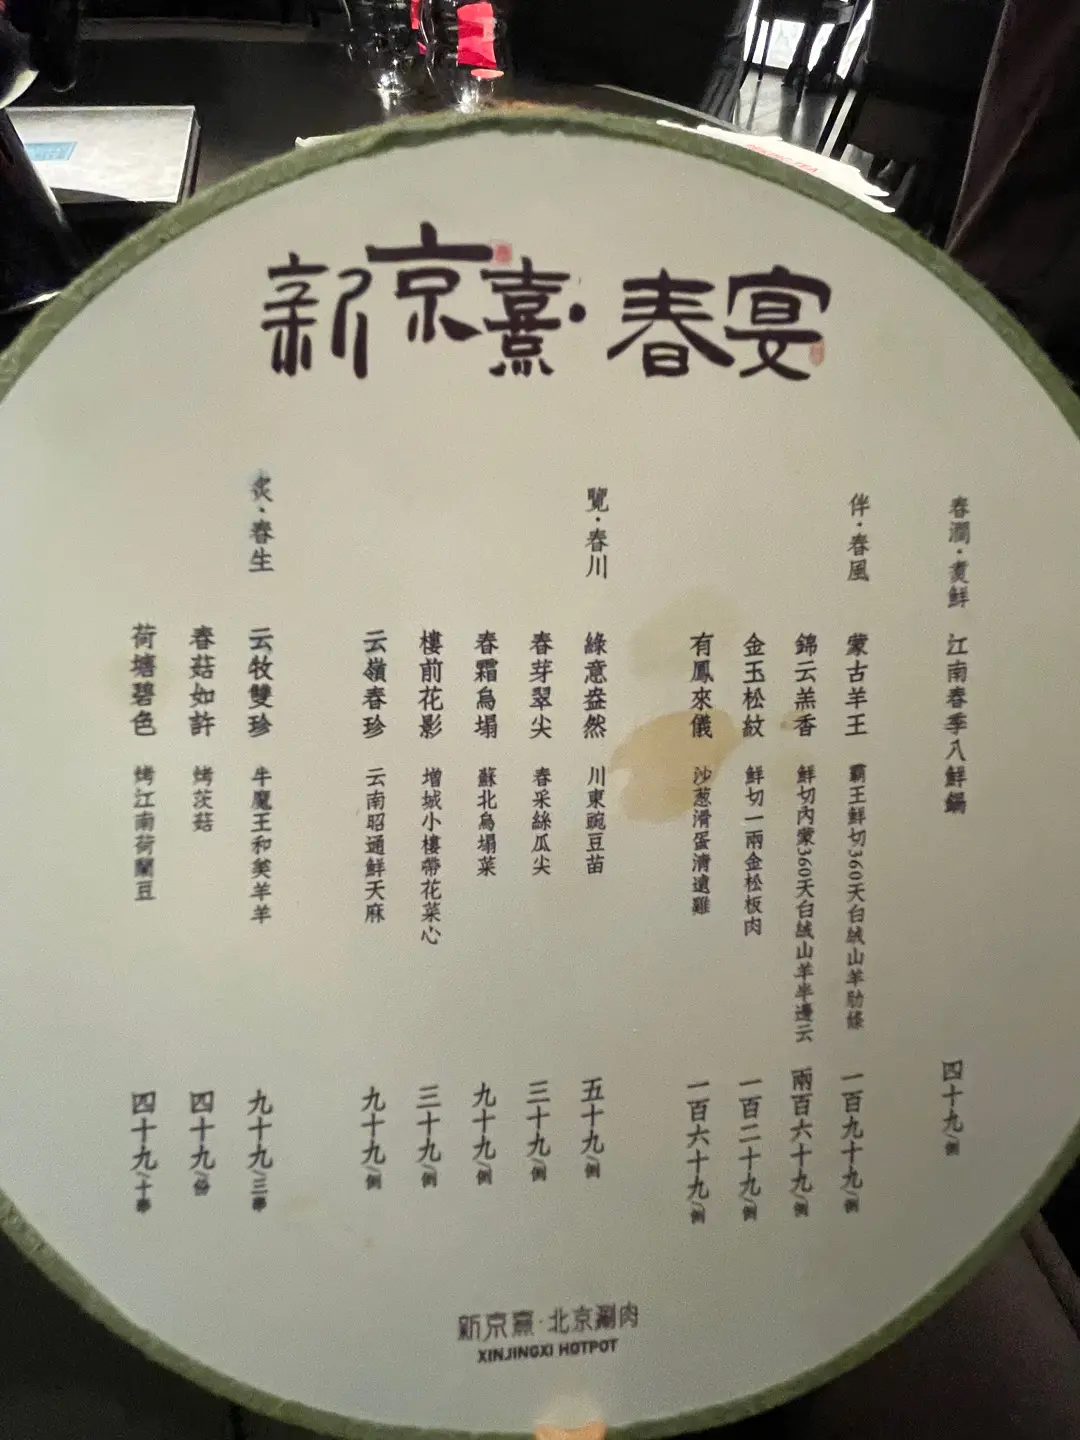 新京熹·春宴
春潤·煮鮮 江南春季八鮮鍋 四十九/例
伴·春風
蒙古羊王 霸王鮮切360天白絨山羊肋條 一百九十九/例
錦云羔香 鮮切內蒙360天白絨山羊半邊云 兩百六十九/例
金玉松紋 鮮切一兩金松板肉 一百二十九/例
有鳳來儀 沙葱滑蛋清遠雞 一百六十九/例
覽·春川
綠意盎然 川東豌豆苗 五十九/例
春芽翠尖 春采絲瓜尖 三十九/例
春霜烏塌 蘇北烏塌菜 九十九/例
樓前花影 增城小樓帶花菜心 三十九/例
云嶺春珍 云南昭通鮮天麻 九十九/例
炙·春生
云牧雙珍 牛魔王和美羊羊 九十九/三串
春菇如許 烤茨菇 四十九/份
荷塘碧色 烤江南荷蘭豆 四十九/十串
新京熹·北京涮肉
XINJINGXI HOTPOT